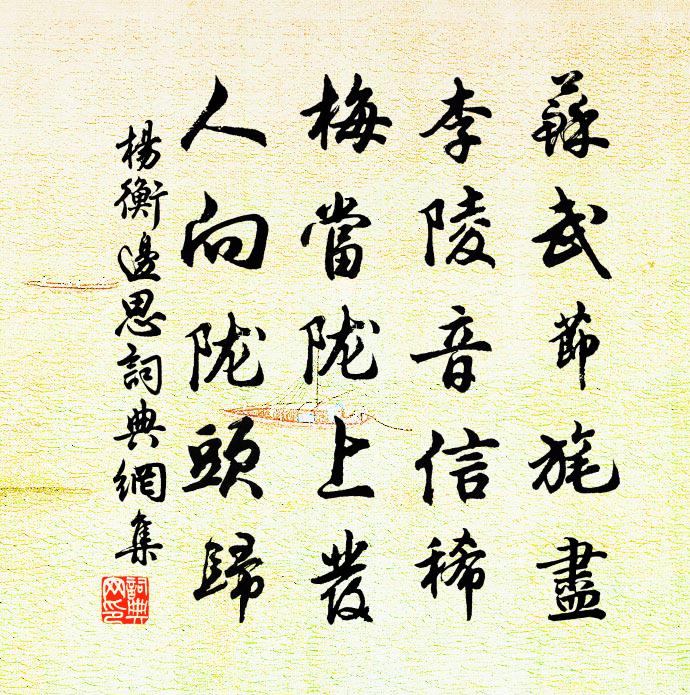 蘇武節旄盡
李陵音信稀
梅當陇上發
人向陇頭歸
楊衡邊思詞典網集
詞典
网印